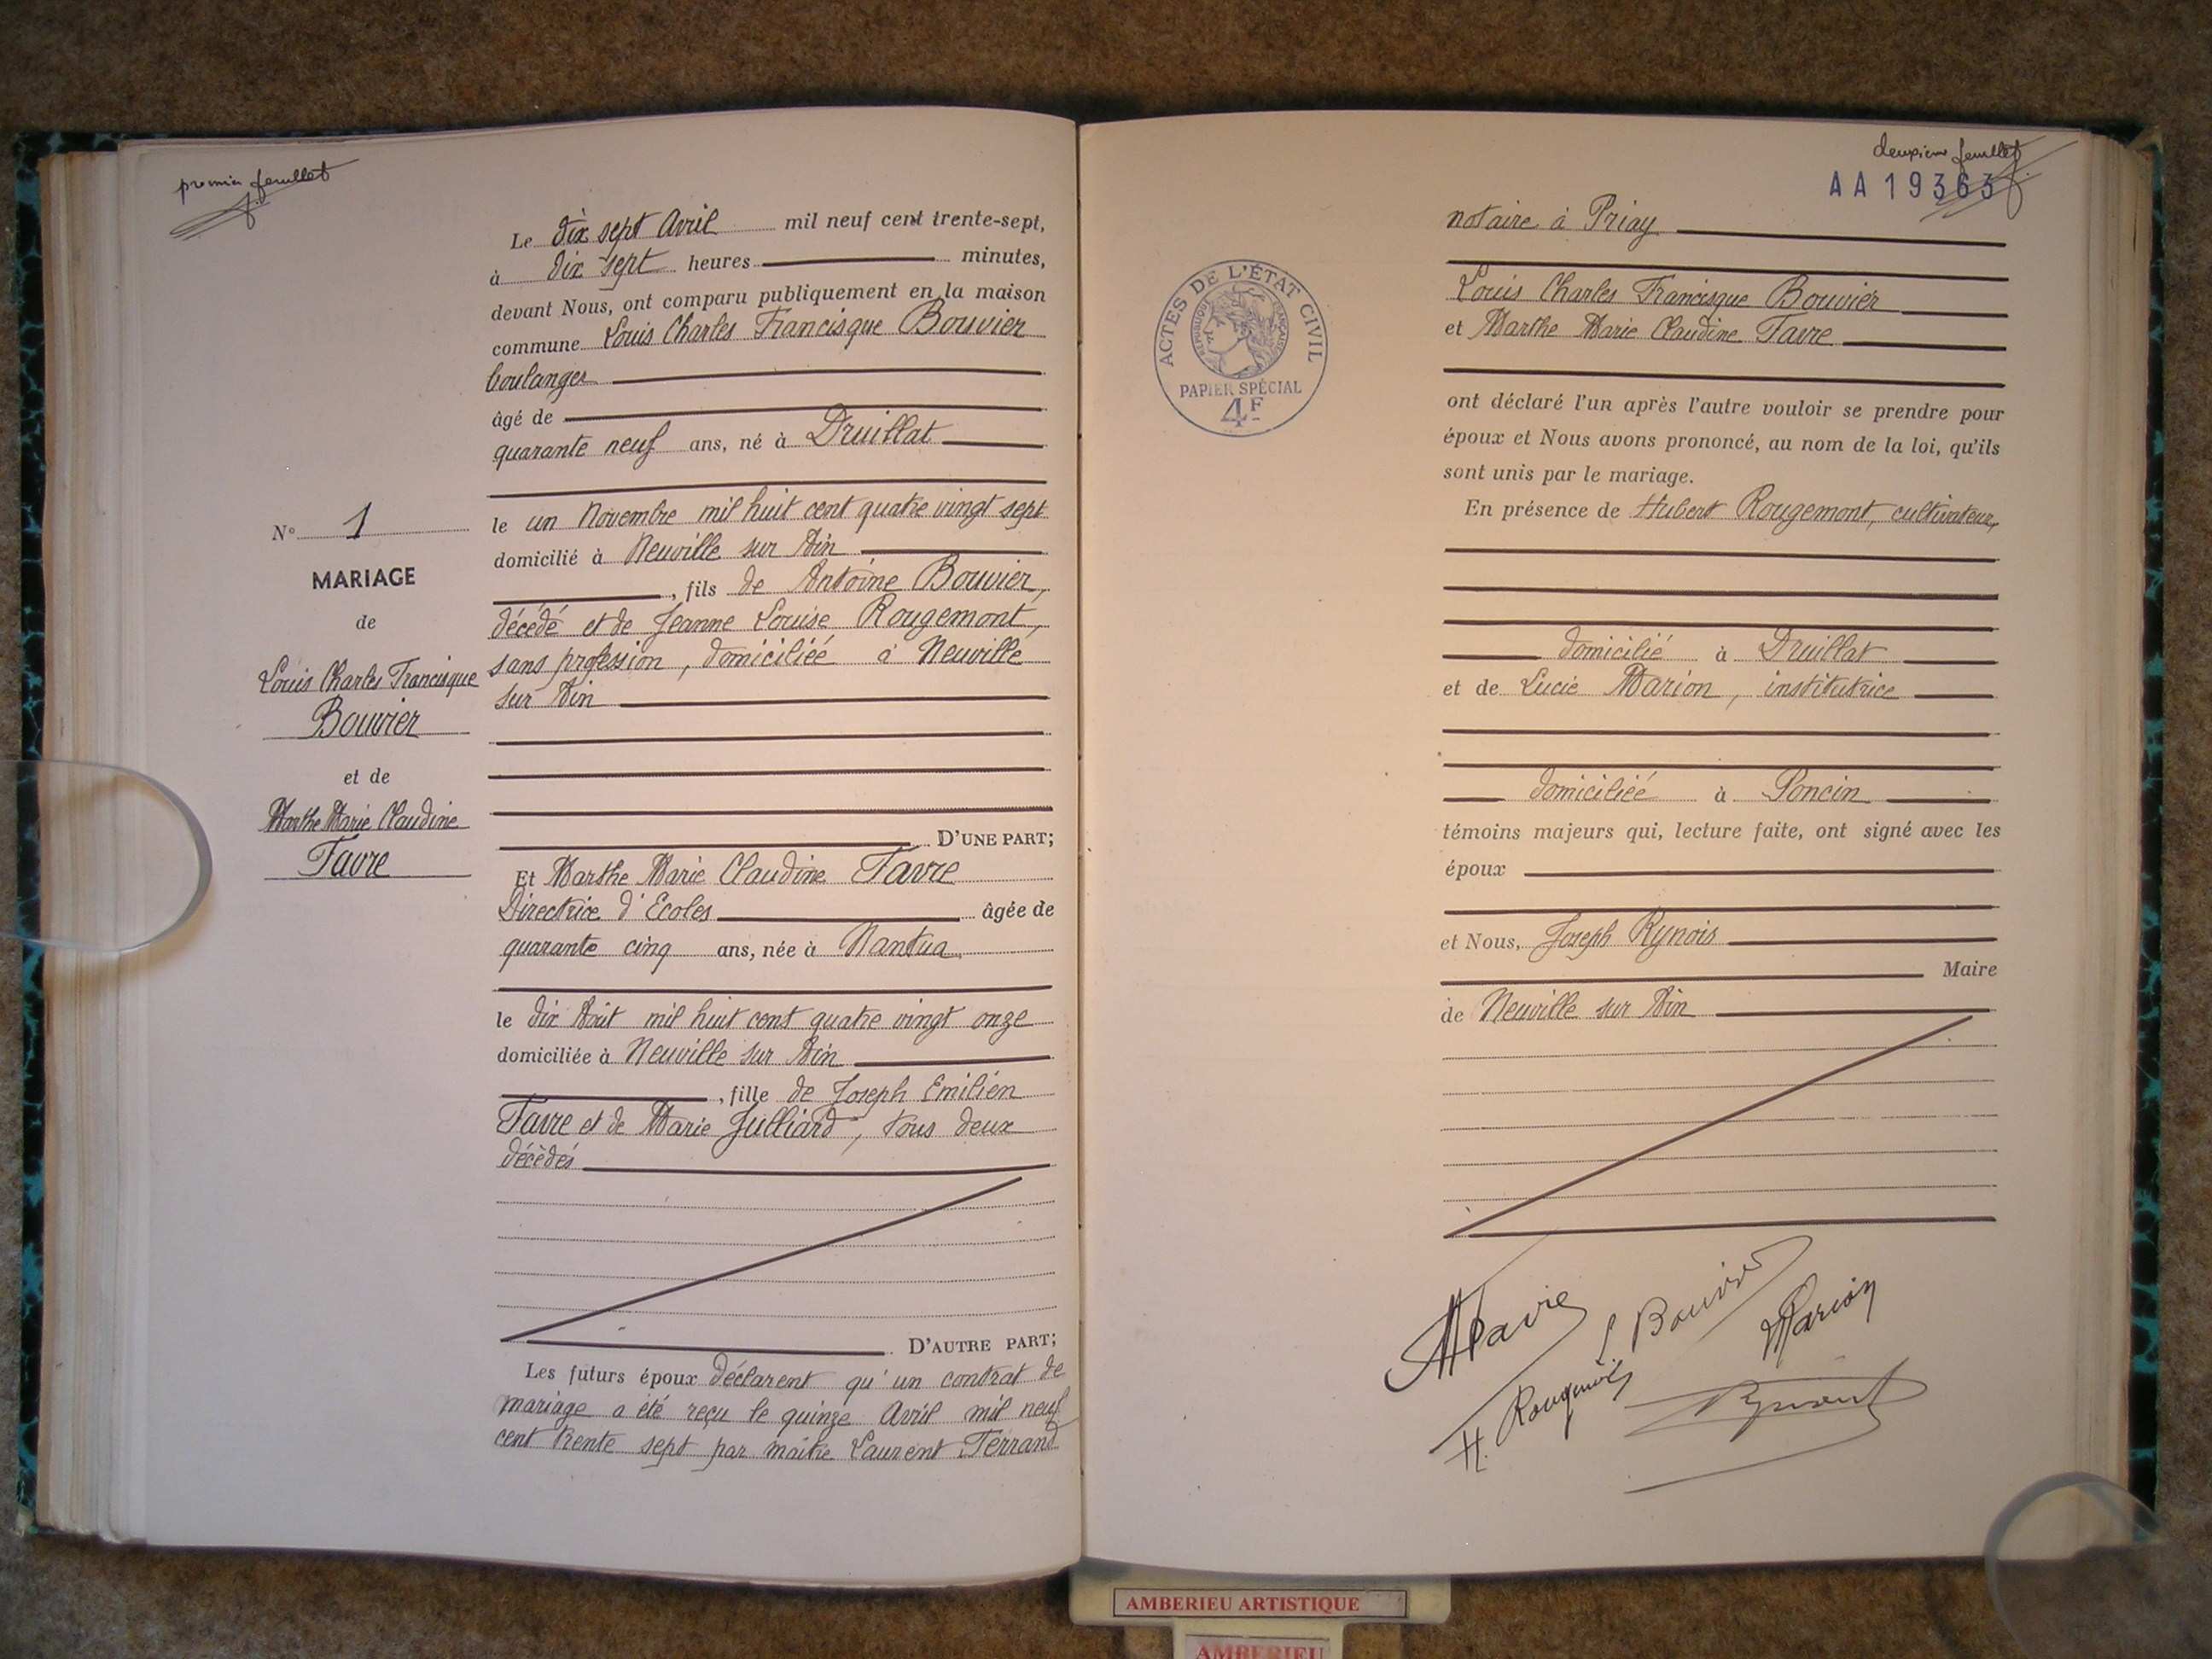 premier feuillet
Le dix sept Avril mil neuf cent trente-sept,
à dix sept heures minutes,
devant Nous, ont comparu publiquement en la maison
commune Louis Charles Francisque Bouvier
boulanger
âgé de
quarante neuf ans, né à Druillat
le un Novembre mil huit cent quatre vingt sept
domicilié à Neuville sur Ain
, fils de Antoine Bouvier,
décédé et de Jeanne Louise Rougemont,
sans profession, domiciliée à Neuville
sur Ain
D'UNE PART;
Et Marthe Marie Claudine Favre
Directrice d'Ecoles âgée de
quarante cinq ans, née à Nantua
le dix Août mil huit cent quatre vingt onze
domiciliée à Neuville sur Ain
, fille de Joseph Emilien
Favre et de Marie Julliard, tous deux
décédés
D'AUTRE PART;
Les futurs époux déclarent qu'un contrat de
mariage a été reçu le quinze Avril mil neuf
cent trente sept par maître Laurent Ferrand
N° 1
MARIAGE
de
Louis Charles Francisque
Bouvier
et de
Marthe Marie Claudine
Favre
deuxième feuillet
AA 19363
notaire à Priay
Louis Charles Francisque Bouvier
et Marthe Marie Claudine Favre
ont déclaré l'un après l'autre vouloir se prendre pour
époux et Nous avons prononcé, au nom de la loi, qu'ils
sont unis par le mariage.
En présence de Hubert Rougemont, cultivateur,
domicilié à Druillat
et de Lucie Marion, institutrice
domiciliée à Poncin
témoins majeurs qui, lecture faite, ont signé avec les
époux
et Nous, Joseph Rynois
Maire
de Neuville sur Ain
ACTES DE L'ÉTAT CIVIL
RÉPUBLIQUE FRANÇAISE
PAPIER SPÉCIAL
4F
MFavre
L Bouvier
Marion
H. Rougemont
AMBERIEU ARTISTIQUE
AMBERIEU